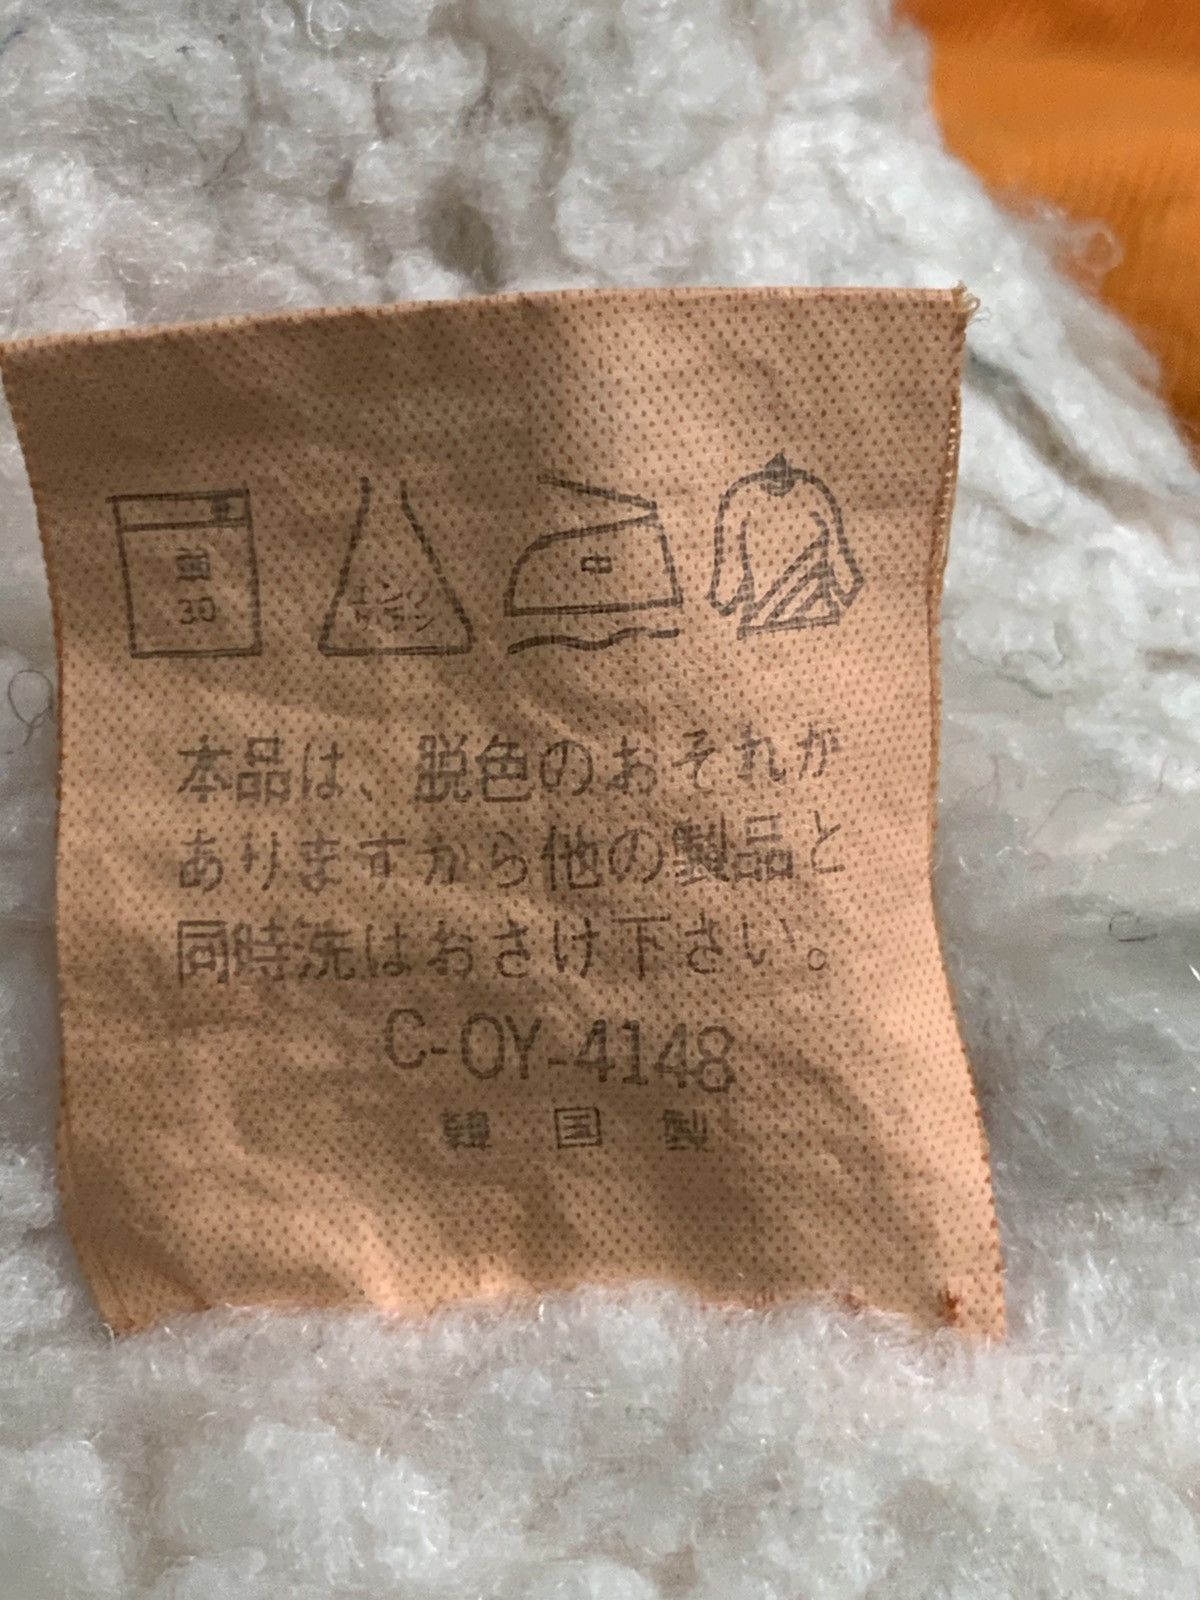 弱
30
エンソ
サラシ
中
本品は、脱色のおそれが
ありますから他の製品と
同時洗はおさけ下さい。
C-OY-4148
韓国製